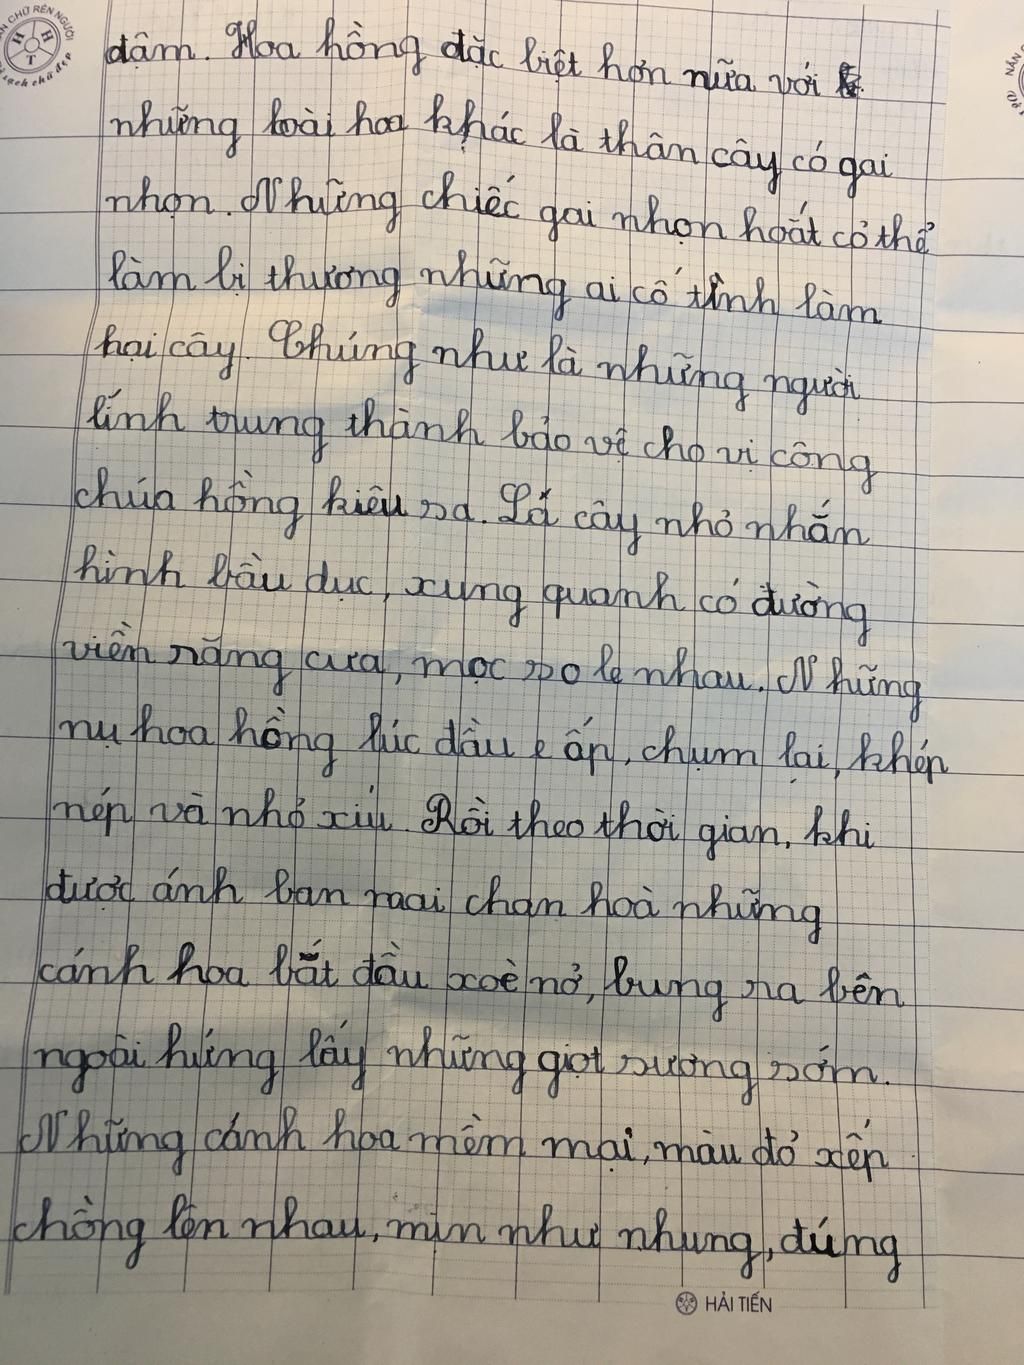 đậm. Hoa hồng đặc biệt hơn nữa với
những loài hoa khác là thân cây có gai
nhọn. Những chiếc gai nhọn hoắt có thể
làm bị thương những ai cố tình làm
hại cây. Chúng như là những người
lính trung thành bảo vệ cho vị công
chúa hồng kiêu sa. Lá cây nhỏ nhắn
hình bầu dục, xung quanh có đường
viền răng cưa, mọc so le nhau. Những
nụ hoa hồng lúc đầu e ấp, chụm lại, khép
nép và nhỏ xíu. Rồi theo thời gian, khi
được ánh ban mai chan hoà những
cánh hoa bắt đầu xoè nở, bung ra bên
ngoài hứng lấy những giọt sương sớm.
Những cánh hoa mềm mại, màu đỏ xếp
chồng lên nhau, mịn như nhung, đứng
HẢI TIẾN